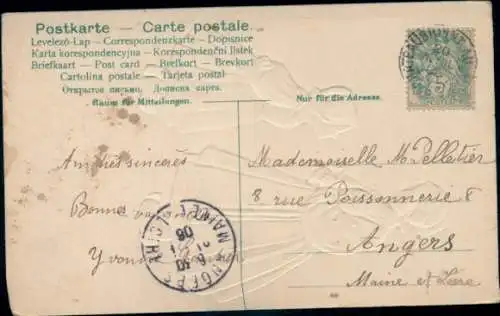 Postkarte — Carte postale.
Levelező-Lap — Correspondenzkarte — Dopisnice
Karta korespondencyjna — Korespondenční lístek
Briefkaart — Post card — Brefkort — Brevkort
Cartolina postale — Tarjeta postal
Открытое письмо. Дописна карта.
Raum für Mitteilungen.
Nur für die Adresse.
Amitiés sincères
Bonne
Yvonne
Mademoiselle M. Pelletier
8 rue Poissonnerie 8
Angers
Maine et Loire
ANGERS MAINE-ET-LOIRE
06